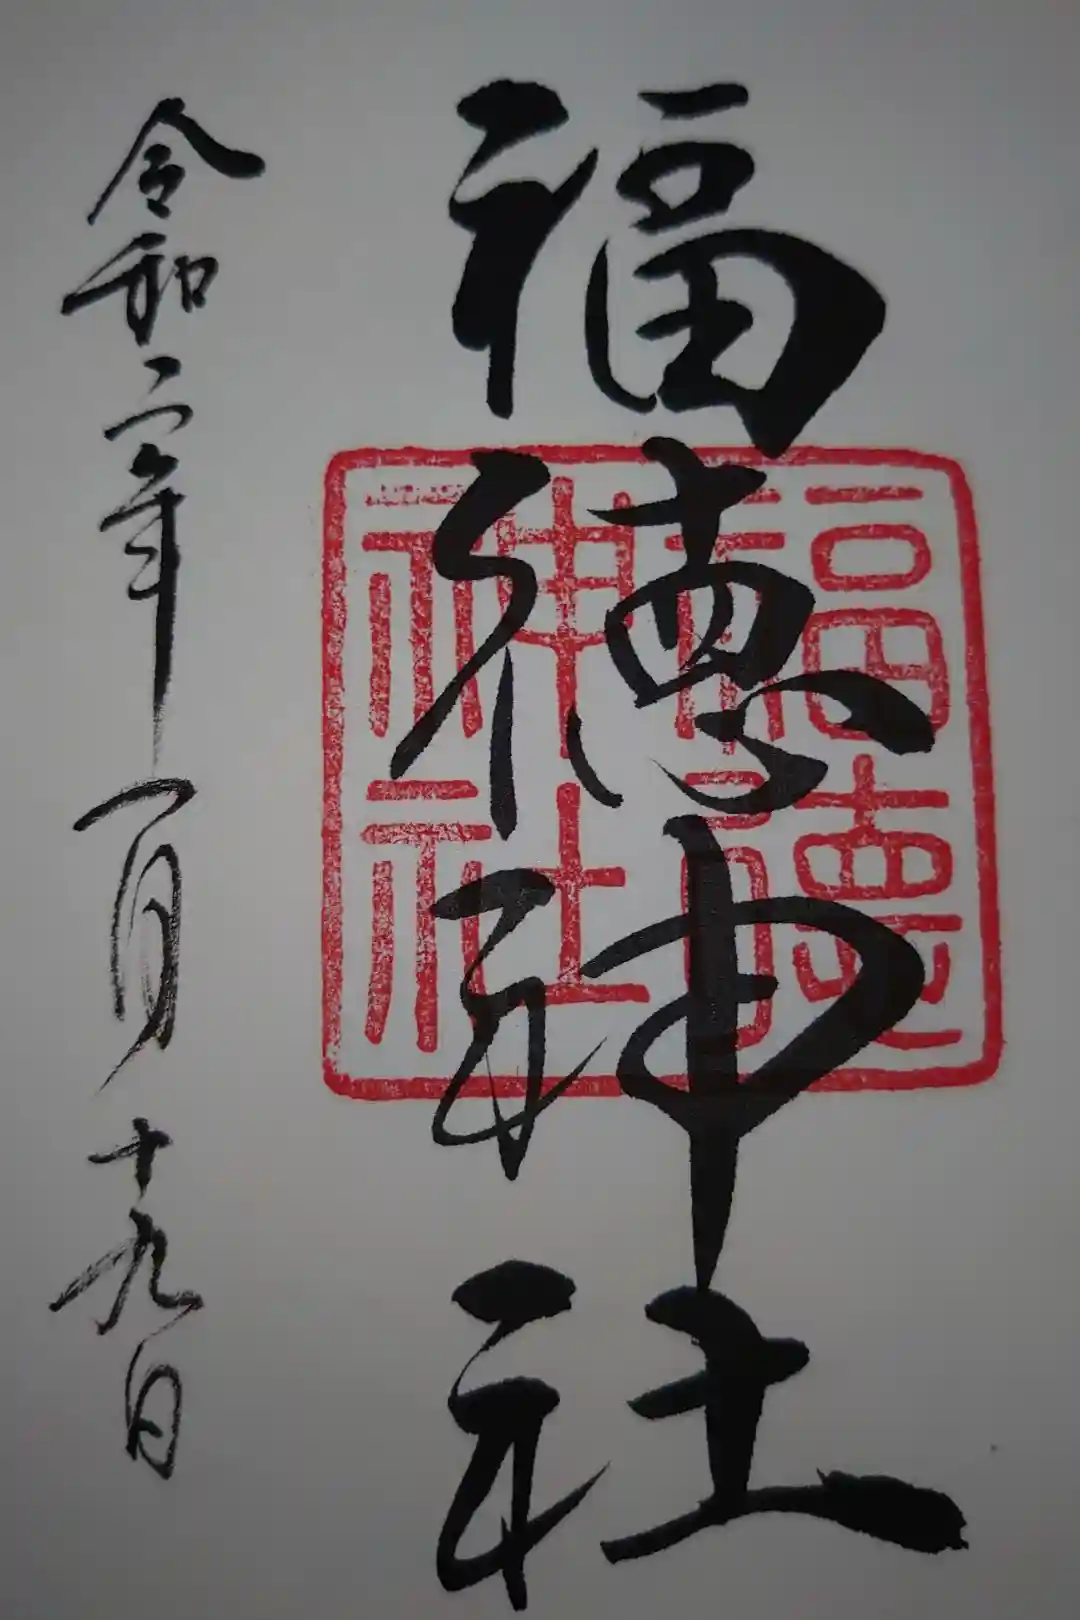 福徳神社
福徳
神社
令和二年一月十九日